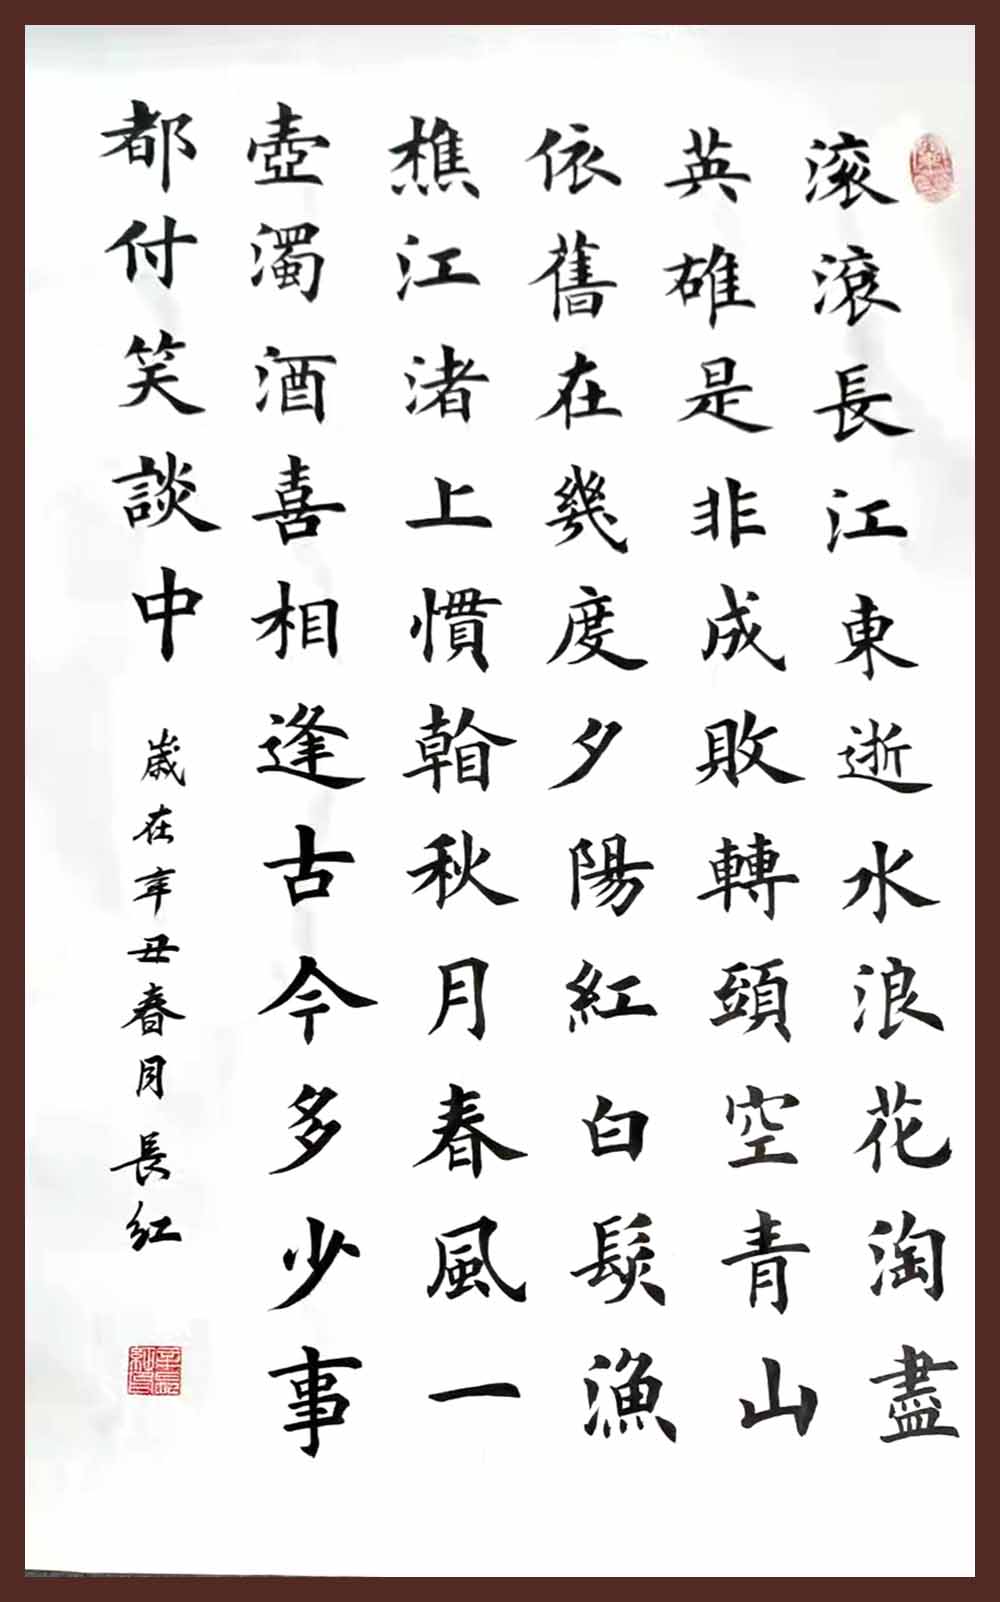 滾滾長江東逝水浪花淘盡
英雄是非成敗轉頭空青山
依舊在幾度夕陽紅白髮漁
樵江渚上慣看秋月春風一
壺濁酒喜相逢古今多少事
都付笑談中
歲在辛丑春月 長紅